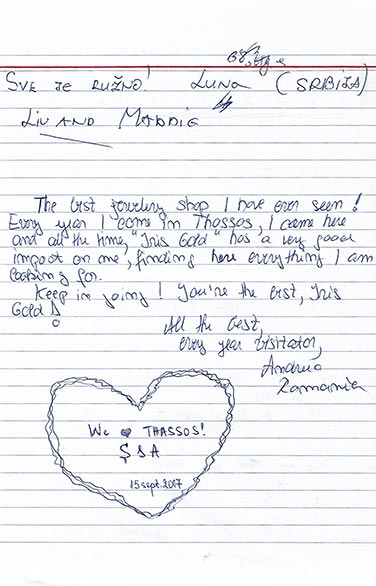 SVE JE RUŽNO! LUNA (SRBIJA)
LIV AND MADDIE
The best jewelery shop I have ever seen!
Every year I come in Thassos, I came here
and all the time, "Iris Gold" has a very good
impact on me, finding here everything I am
looking for.
Keep in going! You're the best, Iris
Gold!
All the best,
every year visitator,
Andreea
Romania
We ♥ THASSOS!
Ș S A
15 sept. 2017